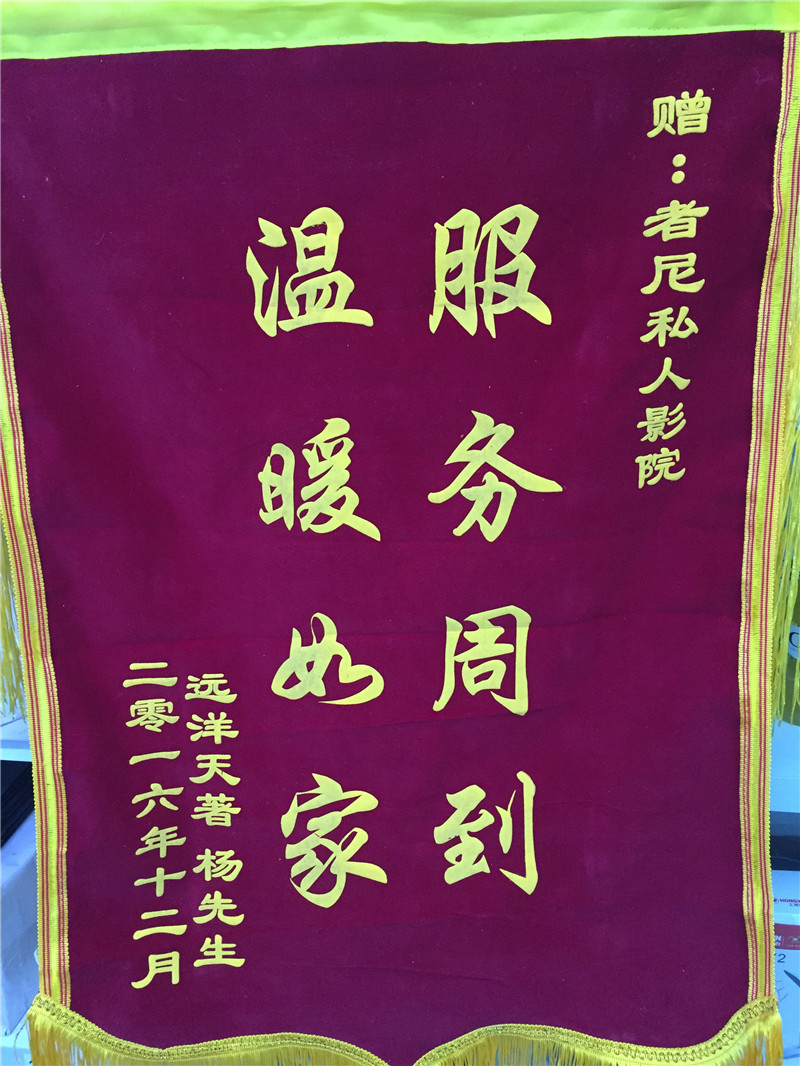 赠：者尼私人影院
服务周到
温暖如家
远洋天著 杨先生
二零一六年十二月